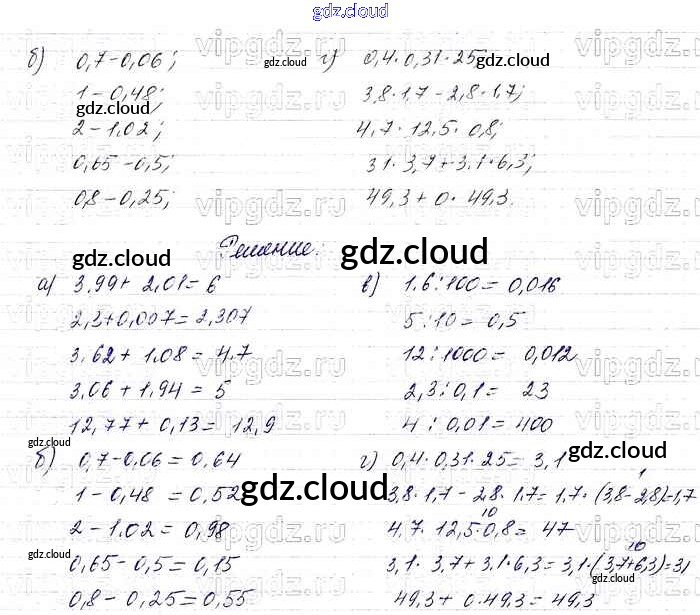 gdz.cloud
б) 0,7-0,06; г) 0,4·0,31·25
gdz.cloud gdz.cloud
1-0,48; 3,8·1,7-2,8·1,7;
gdz.cloud
2-1.02; 4,7·12,5·0,8;
0,65-0,5; 3,1·3,7+3,1·6,3;
0,8-0,25; 49,3+0·49,3.
vipgdz.ru
Решение:
gdz.cloud gdz.cloud
а) 3,99+2,01=6 в) 1,6:100=0,016
2,3+0,007=2,307 5:10=0,5
3,62+1,08=4,7 12:1000=0,012
3,06+1,94=5 2,3:0,1=23
12,77+0,13=12,9 4:0,01=400
gdz.cloud
б) 0,7-0,06=0,64 г) 0,4·0,31·25=3,1
gdz.cloud
1
1-0,48=0,52 3,8·1,7-2,8·1,7=1,7·(3,8-2,8)=1,7
gdz.cloud
10
2-1.02=0,98 4,7·12,5·0,8=47
gdz.cloud
10
0,65-0,5=0,15 3,1·3,7+3,1·6,3=3,1·(3,7+6,3)=31
gdz.cloud
0,8-0,25=0,55 49,3+0·49,3=49,3
gdz.cloud